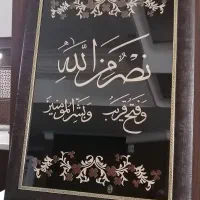 نصر من الله
وفتح قريب وبشر المؤمنين